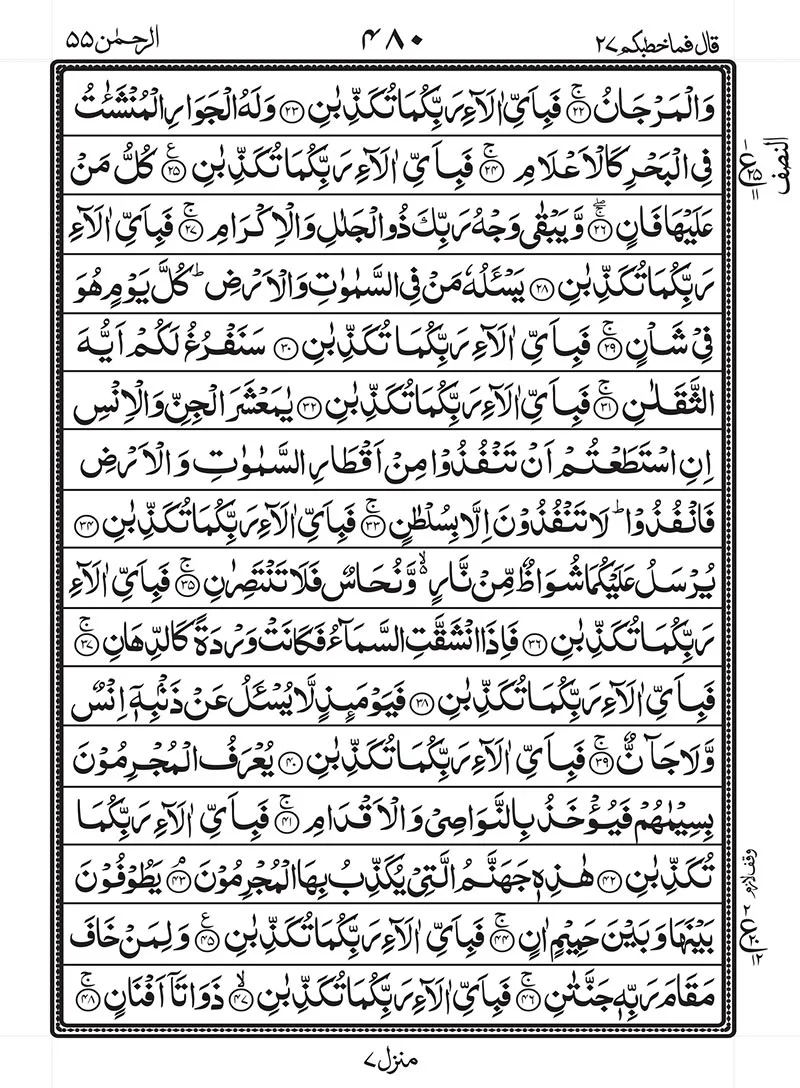 قال فما خطبكم ٢٧
٤٨٠
الرحمٰن ٥٥
وَالْمَرْجَانُ ۚ﴿٢٢﴾ فَبِاَىِّ اٰلَآءِ رَبِّكُمَا تُكَذِّبٰنِ ﴿٢٣﴾ وَلَهُ الْجَوَارِ الْمُنْشَـٰٔتُ
فِى الْبَحْرِ كَالْاَعْلَامِ ۚ﴿٢٤﴾ فَبِاَىِّ اٰلَآءِ رَبِّكُمَا تُكَذِّبٰنِ ﴿٢٥﴾ ع كُلُّ مَنْ
النصف
ع ٢٥ ١١
عَلَيْهَا فَانٍ ۖۚ﴿٢٦﴾ وَّيَبْقٰى وَجْهُ رَبِّكَ ذُو الْجَلٰلِ وَالْاِكْرَامِ ۚ﴿٢٧﴾ فَبِاَىِّ اٰلَآءِ
رَبِّكُمَا تُكَذِّبٰنِ ﴿٢٨﴾ يَسْـَٔلُهٗ مَنْ فِى السَّمٰوٰتِ وَالْاَرْضِ ؕ كُلَّ يَوْمٍ هُوَ
فِىْ شَاْنٍ ۚ﴿٢٩﴾ فَبِاَىِّ اٰلَآءِ رَبِّكُمَا تُكَذِّبٰنِ ﴿٣٠﴾ سَنَفْرُغُ لَكُمْ اَيُّهَ
الثَّقَلٰنِ ۚ﴿٣١﴾ فَبِاَىِّ اٰلَآءِ رَبِّكُمَا تُكَذِّبٰنِ ﴿٣٢﴾ يٰمَعْشَرَ الْجِنِّ وَالْاِنْسِ
اِنِ اسْتَطَعْتُمْ اَنْ تَنْفُذُوْا مِنْ اَقْطَارِ السَّمٰوٰتِ وَالْاَرْضِ
فَانْفُذُوْا ؕ لَا تَنْفُذُوْنَ اِلَّا بِسُلْطٰنٍ ۚ﴿٣٣﴾ فَبِاَىِّ اٰلَآءِ رَبِّكُمَا تُكَذِّبٰنِ ﴿٣٤﴾
يُرْسَلُ عَلَيْكُمَا شُوَاظٌ مِّنْ نَّارٍ ۙ وَّنُحَاسٌ فَلَا تَنْتَصِرٰنِ ۚ﴿٣٥﴾ فَبِاَىِّ اٰلَآءِ
رَبِّكُمَا تُكَذِّبٰنِ ﴿٣٦﴾ فَاِذَا انْشَقَّتِ السَّمَآءُ فَكَانَتْ وَرْدَةً كَالدِّهَانِ ۚ﴿٣٧﴾
فَبِاَىِّ اٰلَآءِ رَبِّكُمَا تُكَذِّبٰنِ ﴿٣٨﴾ فَيَوْمَئِذٍ لَّا يُسْـَٔلُ عَنْ ذَنْۢبِهٖۤ اِنْسٌ
وَّلَا جَآنٌّ ۚ﴿٣٩﴾ فَبِاَىِّ اٰلَآءِ رَبِّكُمَا تُكَذِّبٰنِ ﴿٤٠﴾ يُعْرَفُ الْمُجْرِمُوْنَ
بِسِيْمٰهُمْ فَيُؤْخَذُ بِالنَّوَاصِىْ وَالْاَقْدَامِ ۚ﴿٤١﴾ فَبِاَىِّ اٰلَآءِ رَبِّكُمَا
تُكَذِّبٰنِ ﴿٤٢﴾ هٰذِهٖ جَهَنَّمُ الَّتِىْ يُكَذِّبُ بِهَا الْمُجْرِمُوْنَ ۘ﴿٤٣﴾ يَطُوْفُوْنَ
وقف لازم
بَيْنَهَا وَبَيْنَ حَمِيْمٍ اٰنٍ ۚ﴿٤٤﴾ فَبِاَىِّ اٰلَآءِ رَبِّكُمَا تُكَذِّبٰنِ ﴿٤٥﴾ ع وَلِمَنْ خَافَ
ع ٢ ٢٠ ١٢
مَقَامَ رَبِّهٖ جَنَّتٰنِ ۚ﴿٤٦﴾ فَبِاَىِّ اٰلَآءِ رَبِّكُمَا تُكَذِّبٰنِ ۙ﴿٤٧﴾ ذَوَاتَاۤ اَفْنَانٍ ۚ﴿٤٨﴾
منزل ٧